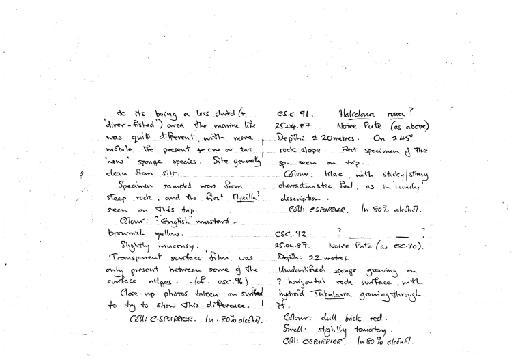 to its being a less dived (&
"diver-fished") area the marine life
was quite different, with more
mobile life present &
"new" sponge species. Site generally
clean from silt.
Specimen sampled was from
steep rock, and the first Mycilla?
seen on this trip.
Colour: "English mustard" -
brownish yellow.
Slightly mucousy.
Transparent surface film was
only present between some of the
surface ridges. (cf. CSC. 96)
Close up photos taken
to try to show this difference.
Coll: C. In 80% alcohol.
CSC 91. Haliclona ?
25.04.87. Norre (as above)
Depth: 20 metres. On 45°
rock slope. First specimen of the
sp. seen on trip.
Colour: lilac, with sticky/stringy
characteristic feel, as in
description.
Coll: C. In 80% alcohol.
CSC. 92 ?
25.04.87. Norre (as CSC. 90).
Depth: 22 metres.
Unidentified sponge growing on
? horizontal rock surface with
hydroid Tubularia growing through
it.
Colour: dull brick red.
Smell: slightly tomatoey.
Coll: C. In 80% alcohol.